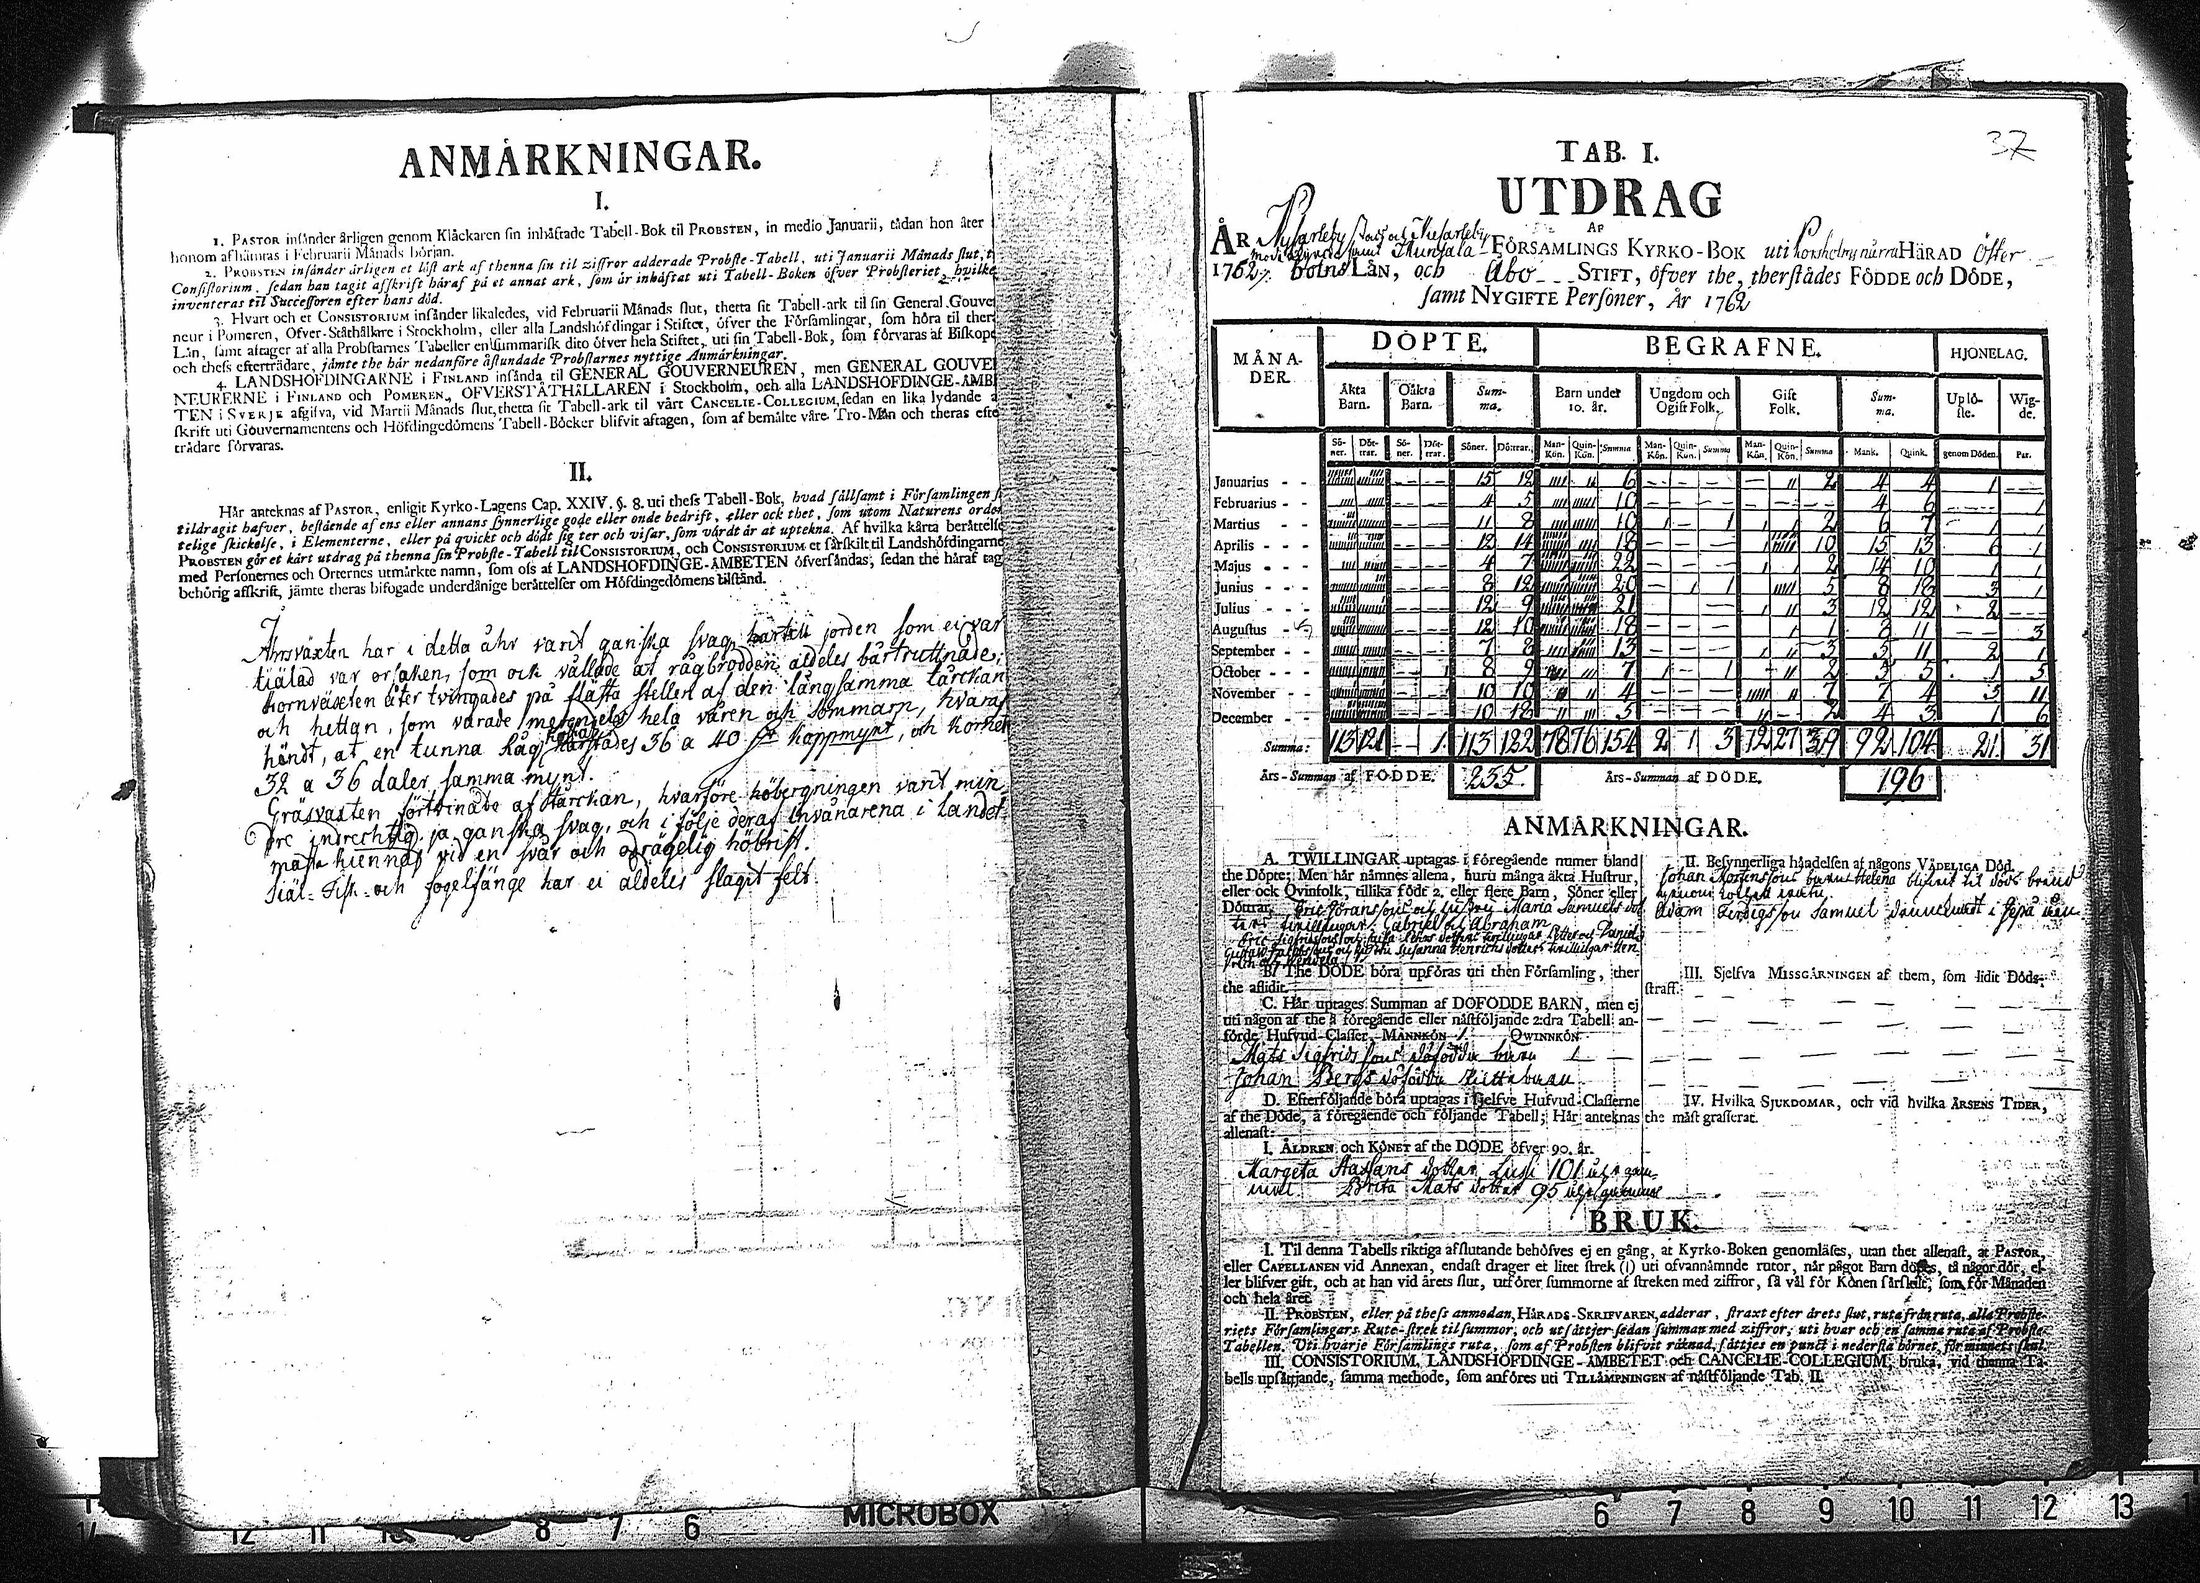 ANMÄRKNINGAR.
I.
1. PASTOR insänder årligen genom Klåckaren sin inhäftade Tabell-Bok til PROBSTEN, in medio Januarii, tådan hon åter
honom afhämtas i Februarii Månads början.
2. PROBSTEN insänder årligen et löst ark af thenna sin til ziffror adderade Probste-Tabell, uti Januarii Månads slut, t
Consistorium, sedan han tagit afskrift häraf på et annat ark, som är inhäftat uti Tabell-Boken öfver Probsteriet, hvilke
inventeras til Successoren efter hans död.
3. Hvart och et CONSISTORIUM insänder likaledes, vid Februarii Månads slut, thetta sit Tabell-ark til sin General Gouver
neur i Pomeren, Ofver-Ståthålare i Stockholm, eller alla Landshöfdingar i Stiftet, öfver the Församlingar, som höra til ther
Län, samt aftager af alla Probstarnes Tabeller en summarisk dito öfver hela Stiftet, uti sin Tabell-Bok, som förvaras af Biskope
och thess efterträdare, jämte the här nedanföre åstundade Probstarnes nyttige Anmärkningar.
4. LANDSHÖFDINGARNE i FINLAND insända til GENERAL GOUVERNEUREN, men GENERAL GOUVE
NEURERNE i FINLAND och POMEREN, ÖFVERSTÅTHÅLLAREN i Stockholm, och alla LANDSHÖFDINGE-ÄMB
TEN i SVERJE afgifva, vid Martii Månads slut, thetta sit Tabell-ark til vårt CANCELIE-COLLEGIUM, sedan en lika lydande a
skrift uti Gouvernamentens och Höfdingedömens Tabell-Böcker blifvit aftagen, som af bemälte våre Tro-Män och theras efte
trädare förvaras.
II.
Här anteknas af PASTOR, enligit Kyrko-Lagens Cap. XXIV. §. 8. uti thess Tabell-Bok, hvad sällsamt i Församlingen s
tildragit hafver, bestående af ens eller annans synnerlige gode eller onde bedrift, eller ock thet, som utom Naturens orden
telige skickelse, i Elementerne, eller på qvickt och dödt sig ter och visar, som värdt är at uptekna. Af hvilka kårta berättelse
PROBSTEN gör et kårt utdrag på thenna sin Probste-Tabell til CONSISTORIUM, och CONSISTORIUM et särskilt til Landshöfdingarne
med Personernes och Orternes utmärkte namn, som oss af LANDSHÖFDINGE-ÄMBETEN öfversändas, sedan the häraf tag
behörig afskrift, jämte theras bifogade underdånige berättelser om Höfdingedömens tilstånd.
Åhrsväxten har i detta åhr varit ganska svag jorden som ei var
tiälad var orsaken, som ock vållade at rågbrodden aldeles bårtruttnade;
kornväxten åter tvingades på flasta stellen af den långsamma tårckan
och hettan, som varade hela våren och sommarn, hvaraf
händt, at en tunna Råg kåstades 36 a 40 koppmynt, och kornet
32 a 36 daler samma mynt.
Gräsväxten förtvinade af tårckan, hvarföre höbergningen varit min
dre indrechtig, ja ganska svag, och i följe deraf invånarena i landet
måste kiennas vid en svår och odrägelig höbrist.
Siäl- Fisk- och fogelfänge har ei aldeles slagit felt.
37
TAB. I.
UTDRAG
AF
ÅR Nykarleby Stad och
FÖRSAMLINGS KYRKO-BOK uti Korsholms norra HÄRAD Öster
1762. botns LÄN, och Åbo STIFT, öfver the, therstädes FÖDDE och DÖDE,
samt NYGIFTE Personer, År 1762
MÅNADER. DÖPTE. BEGRAFNE. HJONELAG.
Äkta Barn. Oäkta Barn. Summa. Barn under 10. år. Ungdom och Ogift Folk. Gift Folk. Summa. Uplöste. Wigde.
Söner. Döttrar. Söner. Döttrar. Söner. Döttrar. Man-Kön. Quin-Kön. Summa Man-Kön. Quin-Kön. Summa Man-Kön. Quin-Kön. Summa Mank. Quink. genom Döden. Par.
Januarius - - 15 12 6 2 4 4 1
Februarius - - 4 5 10 4 6 1
Martius - - 11 8 10 1 1 2 6 7 1 1
Aprilis - - - 12 14 18 10 15 13 6 1
Majus - - - 4 7 22 2 14 10 1 1
Junius - - - 8 12 20 1 1 5 8 18 3 1
Julius - - - 12 9 21 3 12 12 2
Augustus - 12 10 18 1 1 8 11 3
September - - 7 8 13 3 5 11 2 1
October - - 8 9 7 1 1 2 5 5 1 5
November - - 10 10 4 7 7 4 3 11
December - - 10 18 5 2 4 3 1 6
Summa: 113 121 1 113 122 78 76 154 2 1 3 12 27 39 92 104 21 31
Års-Summan af FÖDDE. 235 Års-Summan af DÖDE. 196
ANMÄRKNINGAR.
A. TWILLINGAR uptagas i föregående numer bland
the Döpte; Men här nämnes allena, huru många äkta Hustrur,
eller ock Qvinfolk, tillika födt 2, eller flere Barn, Söner eller
Döttrar. Eric Jöranssons och hustru Maria Samuels dot
ters tvillingar Gabriel och Abraham
B. The DÖDE böra upföras uti then Församling, ther
the aflidit.
C. Här uptages Summan af DÖFÖDDE BARN, men ej
uti någon af the å föregående eller nästföljande 2:dra Tabell an-
förde Hufvud-Classer, MANNKÖN 1. QWINNKÖN
Mats Sigfridssons döfödde barn 1
Johan Bergs döfödda barn
D. Efterföljande böra uptagas i sjelfve Hufvud-Classerne
af the Döde, å föregående och följande Tabell; Här anteknas
allenast:
I. ÅLDREN och KÖNET af the DÖDE öfver 90. år.
Margeta Staffans dotter 101 åhr gam
mal Brita Mats dotter 95 åhr gammal
II. Besynnerliga händelsen af någons VÅDELIGA Död.
Johan Mårtenssons barn Helena blifvit til döds bränd
Adam Samuel
III. Sjelfva MISSGÄRNINGEN af them, som lidit Döds-
straff.
IV. Hvilka SJUKDOMAR, och vid hvilka ÅRSENS TIDER,
the mäst grasserat.
BRUK.
I. Til denna Tabells riktiga afslutande behöfves ej en gång, at Kyrko-Boken genomläses, utan thet allenast, at PASTOR,
eller CAPELLANEN vid Annexan, endast drager et litet strek (I) uti ofvannämnde rutor, når något Barn döpes, tå någor dör, el-
ler blifver gift, och at han vid årets slut, utförer summorne af streken med ziffror, så väl för Könen särskilt, som för Månaden
och hela året.
II. PROBSTEN, eller på thess anmodan, HÄRADS-SKRIFVAREN, adderar, straxt efter årets slut, ruta från ruta, alla Probste-
riets Församlingars Rute-strek til summor, och utsättjer sedan summan med ziffror, uti hvar och en samma ruta af Probste-
Tabellen. Uti hvarje Församlings ruta, som af Probsten blifvit räknad, sättjes en punct i nedersta hörnet, för minnets skul.
III. CONSISTORIUM, LANDSHÖFDINGE-ÄMBETET och CANCELIE-COLLEGIUM, bruka, vid thenna Ta-
bells upsättjande, samma methode, som anföres uti TILLÄMPNINGEN af nästföljande Tab. II.
MICROBOX
14 12 11 10 9 8 7 6 6 7 8 9 10 11 12 13